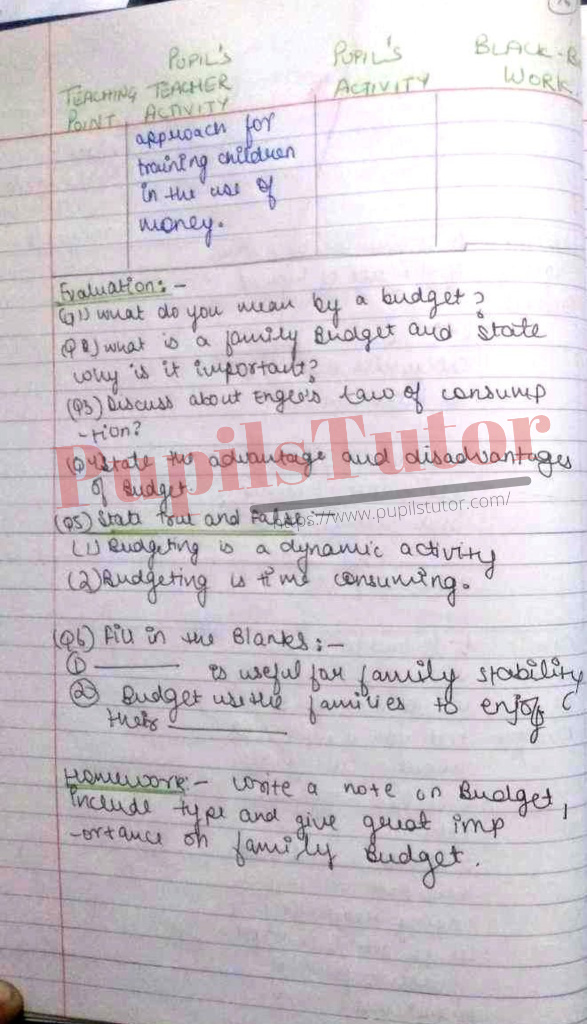 PUPIL'S PUPIL'S BLACK-B
TEACHING TEACHER ACTIVITY WORK
POINT ACTIVITY
approach for
training children
in the use of
money.
Evaluation:-
(Q1) What do you mean by a budget?
(Q2) What is a family Budget and state
why is it important?
(Q3) Discuss about Engel's law of consump
-tion?
(Q4) State the advantage and disadvantages
of Budget
(Q5) State true and False:-
(1) Budgeting is a dynamic activity
(2) Budgeting is time consuming.
(Q6) Fill in the Blanks:-
① ______ is useful for family stability
② Budget families to enjoy
their ______
Homework:- Write a note on Budget,
include type and give great imp
-ortance on family Budget.
PupilsTutor
https://www.pupilstutor.com/